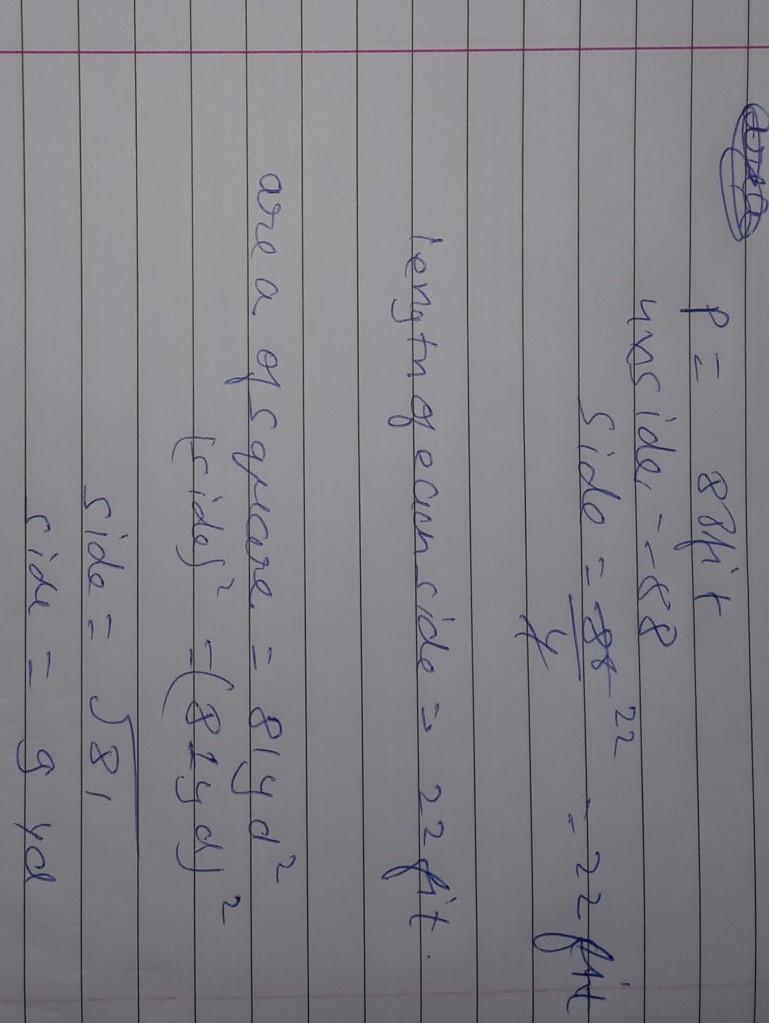 P = 88fit
4×side = 88
side = 88 22 = 22 fit
4
length of each side = 22 fit.
area of square = 81yd²
(side)² = (81yd)²
side = √81
side = 9 yd